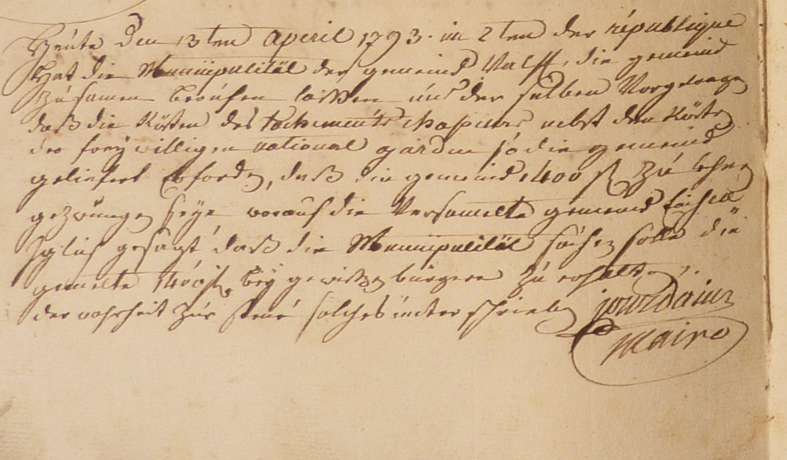 Heüte den 13ten Aperil 1793. im 2ten der république
Hat die Municipalitäl der gemeind Valff, die gemeind
zusamen berüfen laßen und der selben Vorgetragen
daß die Kösten des nebst den Kösten
der freywilligen national garden so die gemeind
geliefert Erforderen, daß die gemeind 1400 fl zu
gezwungen seye worauf die Versamelte gemeind
gesagt daß die Municipalitäl süchen solle die
gemelte 1400 fl. bey gewißen bürgeren zu erhalten.
der wahrheit zur steüer solches unter schrieben jourdain
maire